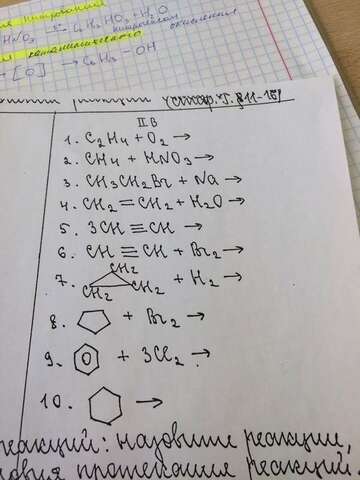 HNO3 → C6H5 NO2 + H2O
→ [O] → C6H5 - OH
реакции
II В
1. C2H4 + O2 →
2. CH4 + HNO3 →
3. CH3CH2Br + Na →
4. CH2 = CH2 + H2O →
5. 3CH ≡ CH →
6. CH ≡ CH + Br2 →
7. CH2 CH2 CH2 + H2 →
8. + Br2 →
9. + 3Cl2 →
10. →
реакций: назовите реакции,
протекания реакций.